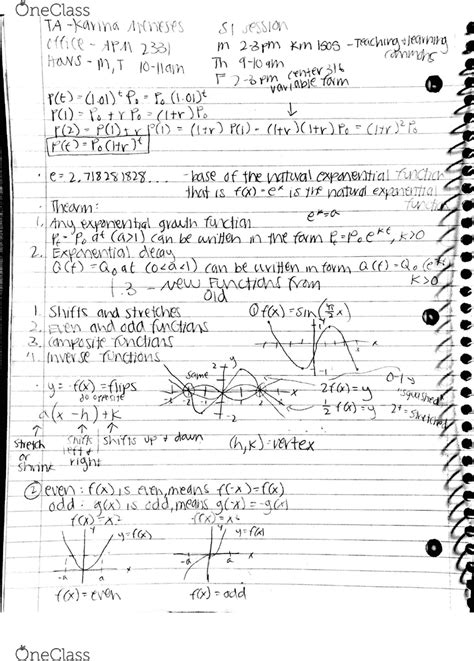 OneClass
TA - Karina SI session
Office - APM 2331 M 2-3pm Km 1505 - Teaching + learning commons
Hours - M, T 10-11am Th 9-10am
F 2-3pm center 316
variable form
P(t) = (1.01)^t P₀ = P₀(1.01)^t
P(1) = P₀ + rP₀ = (1+r)P₀
P(2) = P(1) + rP(1) = (1+r)P(1) = (1+r)(1+r)P₀ = (1+r)²P₀
P(t) = P₀(1+r)^t
· e = 2.718281828... - base of the natural exponential function
that is f(x) = e^x is the natural exponential function
· Theorem: e^k = a
1. Any exponential growth function
P = P₀a^t (a>1) can be written in the form P = P₀e^kt, k>0
2. Exponential decay
Q(t) = Q₀a^t (0<a<1) can be written in form Q(t) = Q₀ k>0
1.3 - New Functions from
Old
1. Shifts and stretches ① f(x) = sin(π/2 x)
2. Even and odd functions
3. Composite functions
4. Inverse functions
· y = -f(x) = flips same 2f(x) = y 0-1 "squished"
do opposite ½f(x) = y 2+ = stretched
a(x - h) + k
stretch or shrink shifts left + right shifts up + down (h,k) = vertex
② even: f(x) is even, means f(-x) = f(x)
odd: g(x) is odd, means g(-x) = -g(x)
f(x) = x² f(x) = x³
y = f(x) y = f(x)
-a a x -a a x
f(x) = even f(x) = odd
OneClass